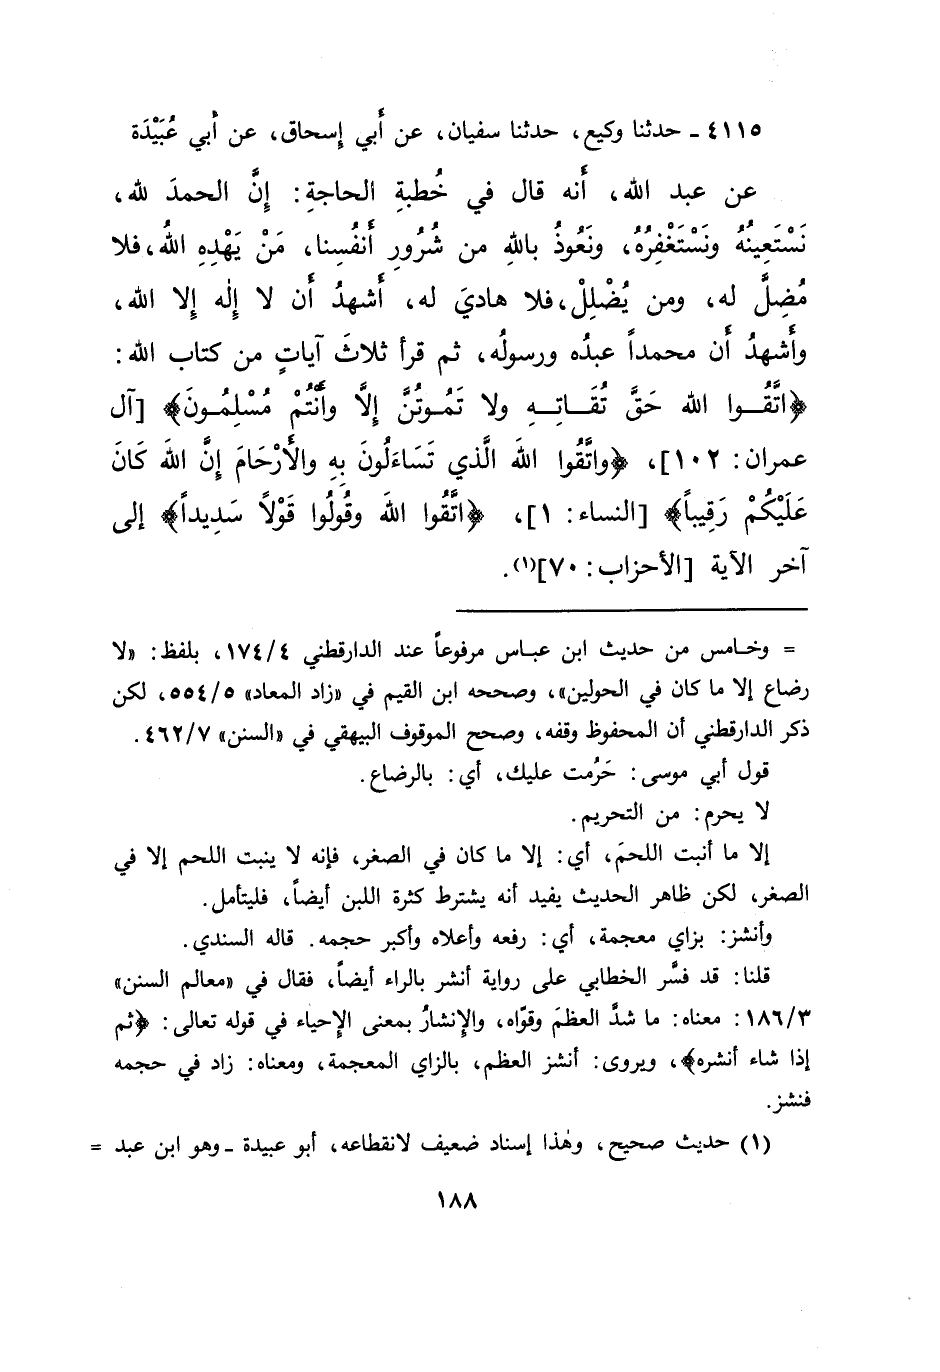 ٤١١٥ ـ حدثنا وكيع، حدثنا سفيان، عن أبي إسحاق، عن أبي عُبَيْدَة
عن عبد الله، أنه قال في خُطبةِ الحاجةِ: إِنَّ الحمدَ لله،
نَسْتَعِينُهُ ونَسْتَغْفِرُهُ، ونَعُوذُ باللهِ من شُرُورِ أَنفُسِنا، مَنْ يَهْدِهِ اللهُ، فلا
مُضِلَّ له، ومن يُضْلِلْ، فلا هاديَ له، أَشهدُ أَن لا إِلٰه إلا الله،
وأَشهدُ أَن محمداً عبدُه ورسولُه، ثم قرأ ثلاثَ آياتٍ من كتاب الله:
﴿اتَّقُـــوا الله حَقَّ تُقَــاتِـــهِ ولا تَمُـوتُنَّ إِلَّا وأَنْتُمْ مُسْلِمُـونَ﴾ [آل
عمران: ١٠٢]، ﴿واتَّقُوا اللهَ الَّذي تَسَاءَلُونَ بِهِ والأَرْحَامَ إِنَّ اللهَ كَانَ
عَلَيْكُمْ رَقِيباً﴾ [النساء: ١]، ﴿اتَّقُوا اللهَ وقُولُوا قَوْلاً سَدِيداً﴾ إلى
آخر الآية [الأحزاب: ٧٠](١).
= وخـامس من حديث ابن عبـاس مرفوعاً عند الدارقطني ١٧٤/٤، بلفظ: «لا
رضاع إلا ما كان في الحولين»، وصححه ابن القيم في «زاد المعاد» ٥٥٤/٥، لكن
ذكر الدارقطني أن المحفوظ وقفه، وصحح الموقوف البيهقي في «السنن» ٤٦٢/٧.
قول أبي موسى: حَرُمت عليك، أي: بالرضاع.
لا يحرم: من التحريم.
إلا ما أنبت اللحمَ، أي: إلا ما كان في الصغر، فإنه لا ينبت اللحم إلا في
الصغر، لكن ظاهر الحديث يفيد أنه يشترط كثرة اللبن أيضاً، فليتأمل.
وأنشز: بزاي معجمة، أي: رفعه وأعلاه وأكبر حجمه. قاله السندي.
قلنا: قد فسَّر الخطابي على رواية أنشر بالراء أيضاً، فقال في «معالم السنن»
١٨٦/٣: معناه: ما شدَّ العظمَ وقوّاه، والإنشارُ بمعنى الإحياء في قوله تعالى: ﴿ثم
إذا شاء أنشره﴾، ويروى: أنشز العظم، بالزاي المعجمة، ومعناه: زاد في حجمه
فنشز.
(١) حديث صحيح، وهٰذا إسناد ضعيف لانقطاعه، أبو عبيدة ـ وهو ابن عبد =
١٨٨